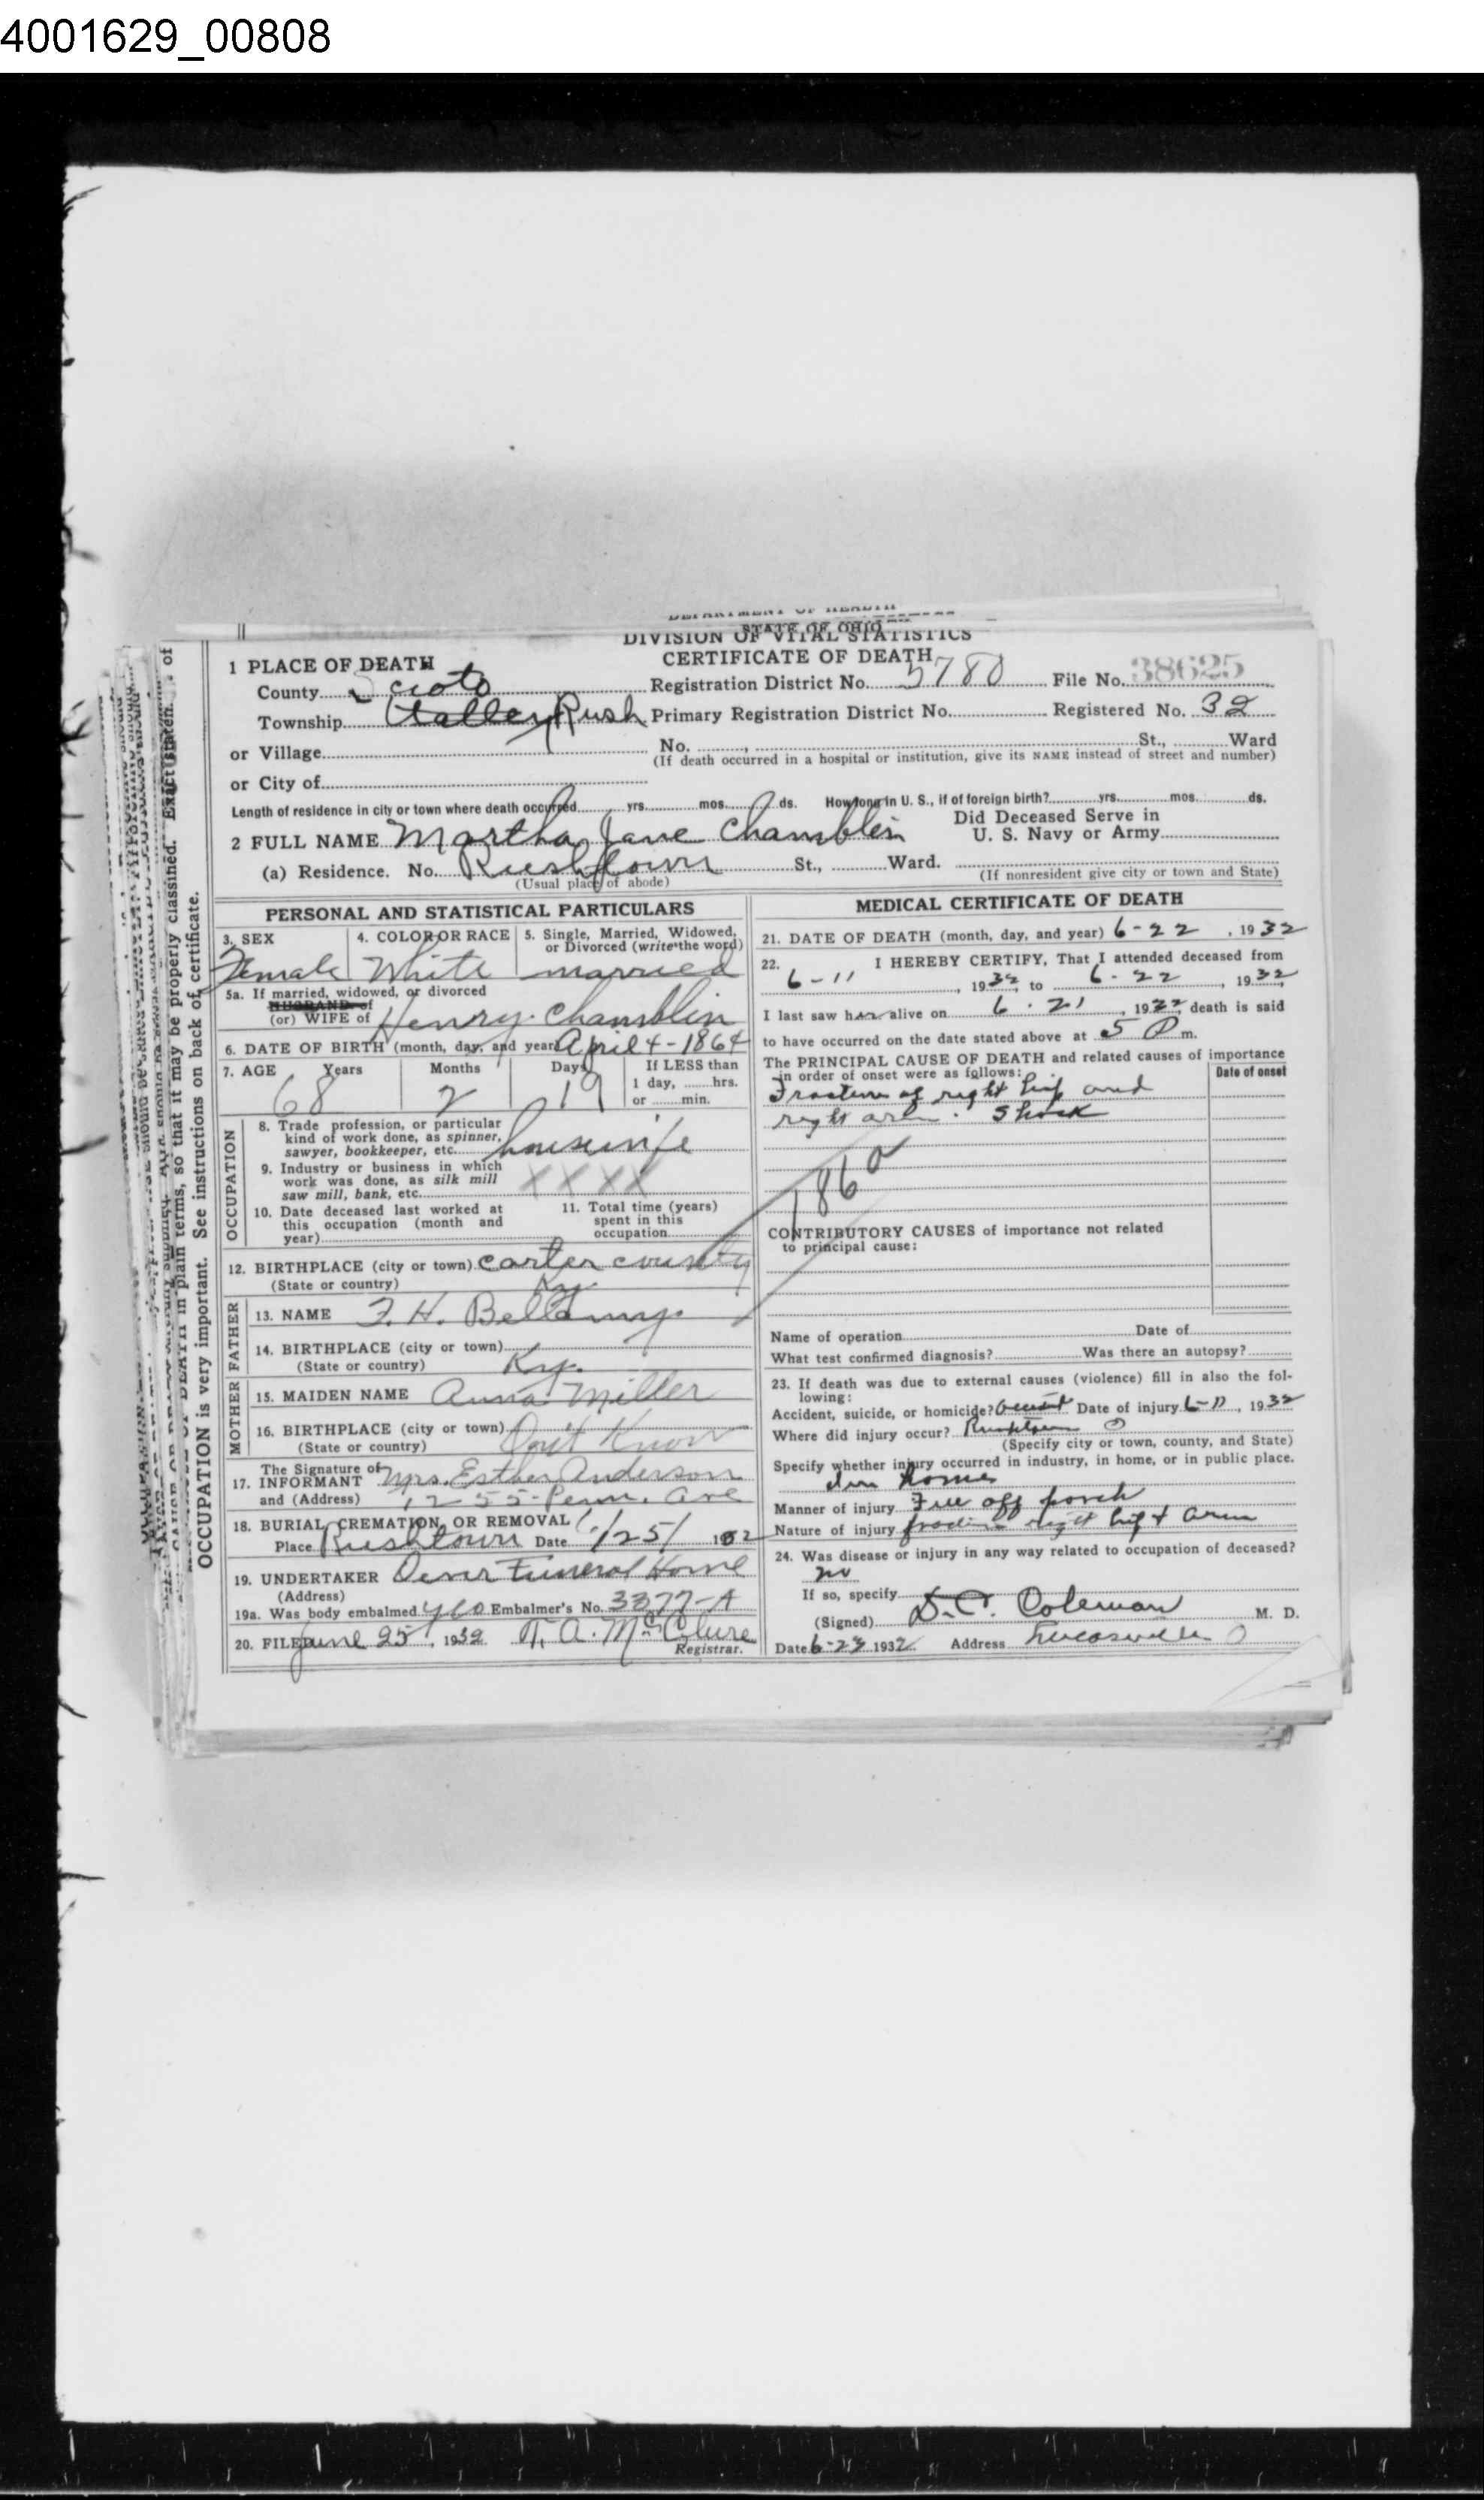 4001629_00808
DEPARTMENT OF HEALTH
STATE OF OHIO
DIVISION OF VITAL STATISTICS
CERTIFICATE OF DEATH
1 PLACE OF DEATH
County Scioto Registration District No. 5780 File No. 38625
Township Valley Rush Primary Registration District No. Registered No. 32
or Village No. St., Ward
(If death occurred in a hospital or institution, give its NAME instead of street and number)
or City of
Length of residence in city or town where death occurred yrs. mos. ds. How long in U. S., if of foreign birth? yrs. mos. ds.
2 FULL NAME Martha Jane Chamblin Did Deceased Serve in U. S. Navy or Army
(a) Residence. No. Rushtown St., Ward.
(Usual place of abode) (If nonresident give city or town and State)
PERSONAL AND STATISTICAL PARTICULARS
3. SEX 4. COLOR OR RACE 5. Single, Married, Widowed, or Divorced (write the word)
Female White married
5a. If married, widowed, or divorced
HUSBAND of
(or) WIFE of Henry Chamblin
6. DATE OF BIRTH (month, day, and year) April 4-1864
7. AGE Years Months Days If LESS than
1 day, hrs.
or min.
68 2 19
OCCUPATION
8. Trade profession, or particular
kind of work done, as spinner,
sawyer, bookkeeper, etc. housewife
9. Industry or business in which
work was done, as silk mill
saw mill, bank, etc. XXXX
10. Date deceased last worked at
this occupation (month and
year)
11. Total time (years)
spent in this
occupation
12. BIRTHPLACE (city or town) Carter county
(State or country) Ky.
FATHER
13. NAME F. H. Bellamy.
14. BIRTHPLACE (city or town)
(State or country) Ky.
MOTHER
15. MAIDEN NAME Anna Miller
16. BIRTHPLACE (city or town) Don't Know
(State or country)
17. The Signature of INFORMANT Mrs. Esther Anderson
and (Address) 1255-Penn. Ave
18. BURIAL, CREMATION, OR REMOVAL
Place Rushtown Date 6/25/ 1932
19. UNDERTAKER Funeral Home
(Address)
19a. Was body embalmed yes Embalmer's No. 3377-A
20. FILED June 25, 1932 A. McClure
Registrar.
MEDICAL CERTIFICATE OF DEATH
21. DATE OF DEATH (month, day, and year) 6-22, 1932
22. I HEREBY CERTIFY, That I attended deceased from
6-11, 1932, to 6-22, 1932
I last saw her alive on 6-21, 1932, death is said
to have occurred on the date stated above at 5 P m.
The PRINCIPAL CAUSE OF DEATH and related causes of importance
in order of onset were as follows: Date of onset
Fracture of right hip and
right arm. Shock
186a
CONTRIBUTORY CAUSES of importance not related
to principal cause:
Name of operation Date of
What test confirmed diagnosis? Was there an autopsy?
23. If death was due to external causes (violence) fill in also the following:
Accident, suicide, or homicide? Accident Date of injury 6-11, 1932
Where did injury occur? Rushtown O
(Specify city or town, county, and State)
Specify whether injury occurred in industry, in home, or in public place.
In home
Manner of injury Fell off porch
Nature of injury fracture right hip & arm
24. Was disease or injury in any way related to occupation of deceased?
no
If so, specify
(Signed) D. C. Coleman M. D.
Date 6-23 1932 Address Lucasville O
OCCUPATION is very important. See instructions on back of certificate.
DEATH in plain terms, so that it may be properly classified. Exact statement of